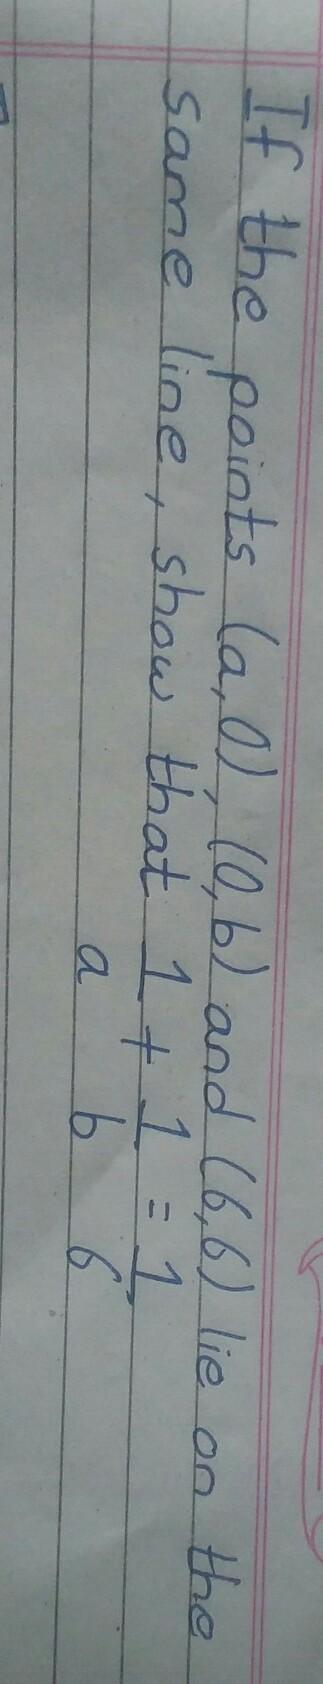 If the points (a,0), (0,b) and (6,6) lie on the
same line, show that 1/a + 1/b = 1/6